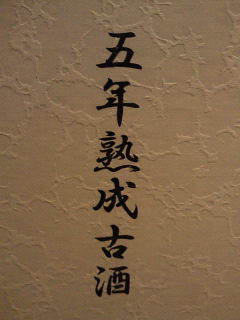 五年熟成古酒